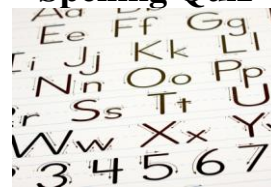 Spelling Quiz
Aa
Ee Ff Gg
i Jj Kk Ll
Nn Oo Pp
r Ss Tt U
Ww Xx Y
3 4 5 6 7